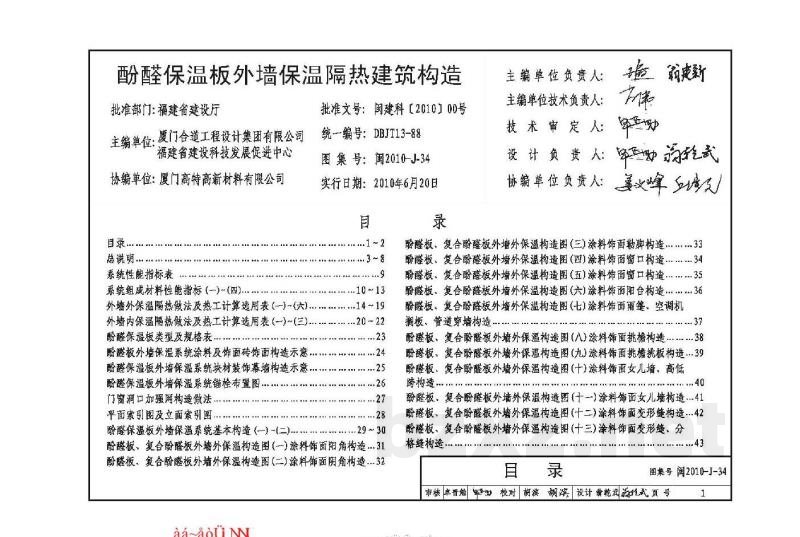 酚醛保温板外墙保温隔热建筑构造
批准部门: 福建省建设厅
批准文号: 闽建科〔2010〕00号
主编单位: 厦门合道工程设计集团有限公司
福建省建设科技发展促进中心
统一编号: DBJT13-88
图 集 号: 闽2010-J-34
协编单位: 厦门高特高新材料有限公司
实行日期: 2010年6月20日
主编单位负责人:
主编单位技术负责人:
技 术 审 定 人:
设 计 负 责 人:
协编单位负责人:
目 录
目录……1~2
总说明……3~8
系统性能指标表……9
系统组成材料性能指标(一)~(四)……10~13
外墙外保温隔热做法及热工计算选用表(一)~(六)……14~19
外墙内保温隔热做法及热工计算选用表(一)~(三)……20~22
酚醛保温板类型及规格表……23
酚醛板外墙保温系统涂料及饰面砖饰面构造示意……24
酚醛保温板外墙保温系统块材装饰幕墙构造示意……25
酚醛保温板外墙保温系统锚栓布置图……26
门窗洞口加强网构造做法……27
平面索引图及立面索引图……28
酚醛保温板外墙保温系统基本构造(一)~(二)……29~30
酚醛板、复合酚醛板外墙外保温构造图(一)涂料饰面阳角构造…31
酚醛板、复合酚醛板外墙外保温构造图(二)涂料饰面阴角构造…32
酚醛板、复合酚醛板外墙外保温构造图(三)涂料饰面勒脚构造……33
酚醛板、复合酚醛板外墙外保温构造图(四)涂料饰面窗口构造……34
酚醛板、复合酚醛板外墙外保温构造图(五)涂料饰面窗口构造……35
酚醛板、复合酚醛板外墙外保温构造图(六)涂料饰面阳台构造……36
酚醛板、复合酚醛板外墙外保温构造图(七)涂料饰面雨篷、空调机
搁板、管道穿墙构造……37
酚醛板、复合酚醛板外墙外保温构造图(八)涂料饰面挑檐构造……38
酚醛板、复合酚醛板外墙外保温构造图(九)涂料饰面挑檐挑板构造…39
酚醛板、复合酚醛板外墙外保温构造图(十)涂料饰面女儿墙、高低
跨构造……40
酚醛板、复合酚醛板外墙外保温构造图(十一)涂料饰面女儿墙构造…41
酚醛板、复合酚醛板外墙外保温构造图(十二)涂料饰面变形缝构造…42
酚醛板、复合酚醛板外墙外保温构造图(十三)涂料饰面变形缝、分
格缝构造……43
目 录
图集号 闽2010-J-34
审核 校对 胡滨 设计 页 号 1